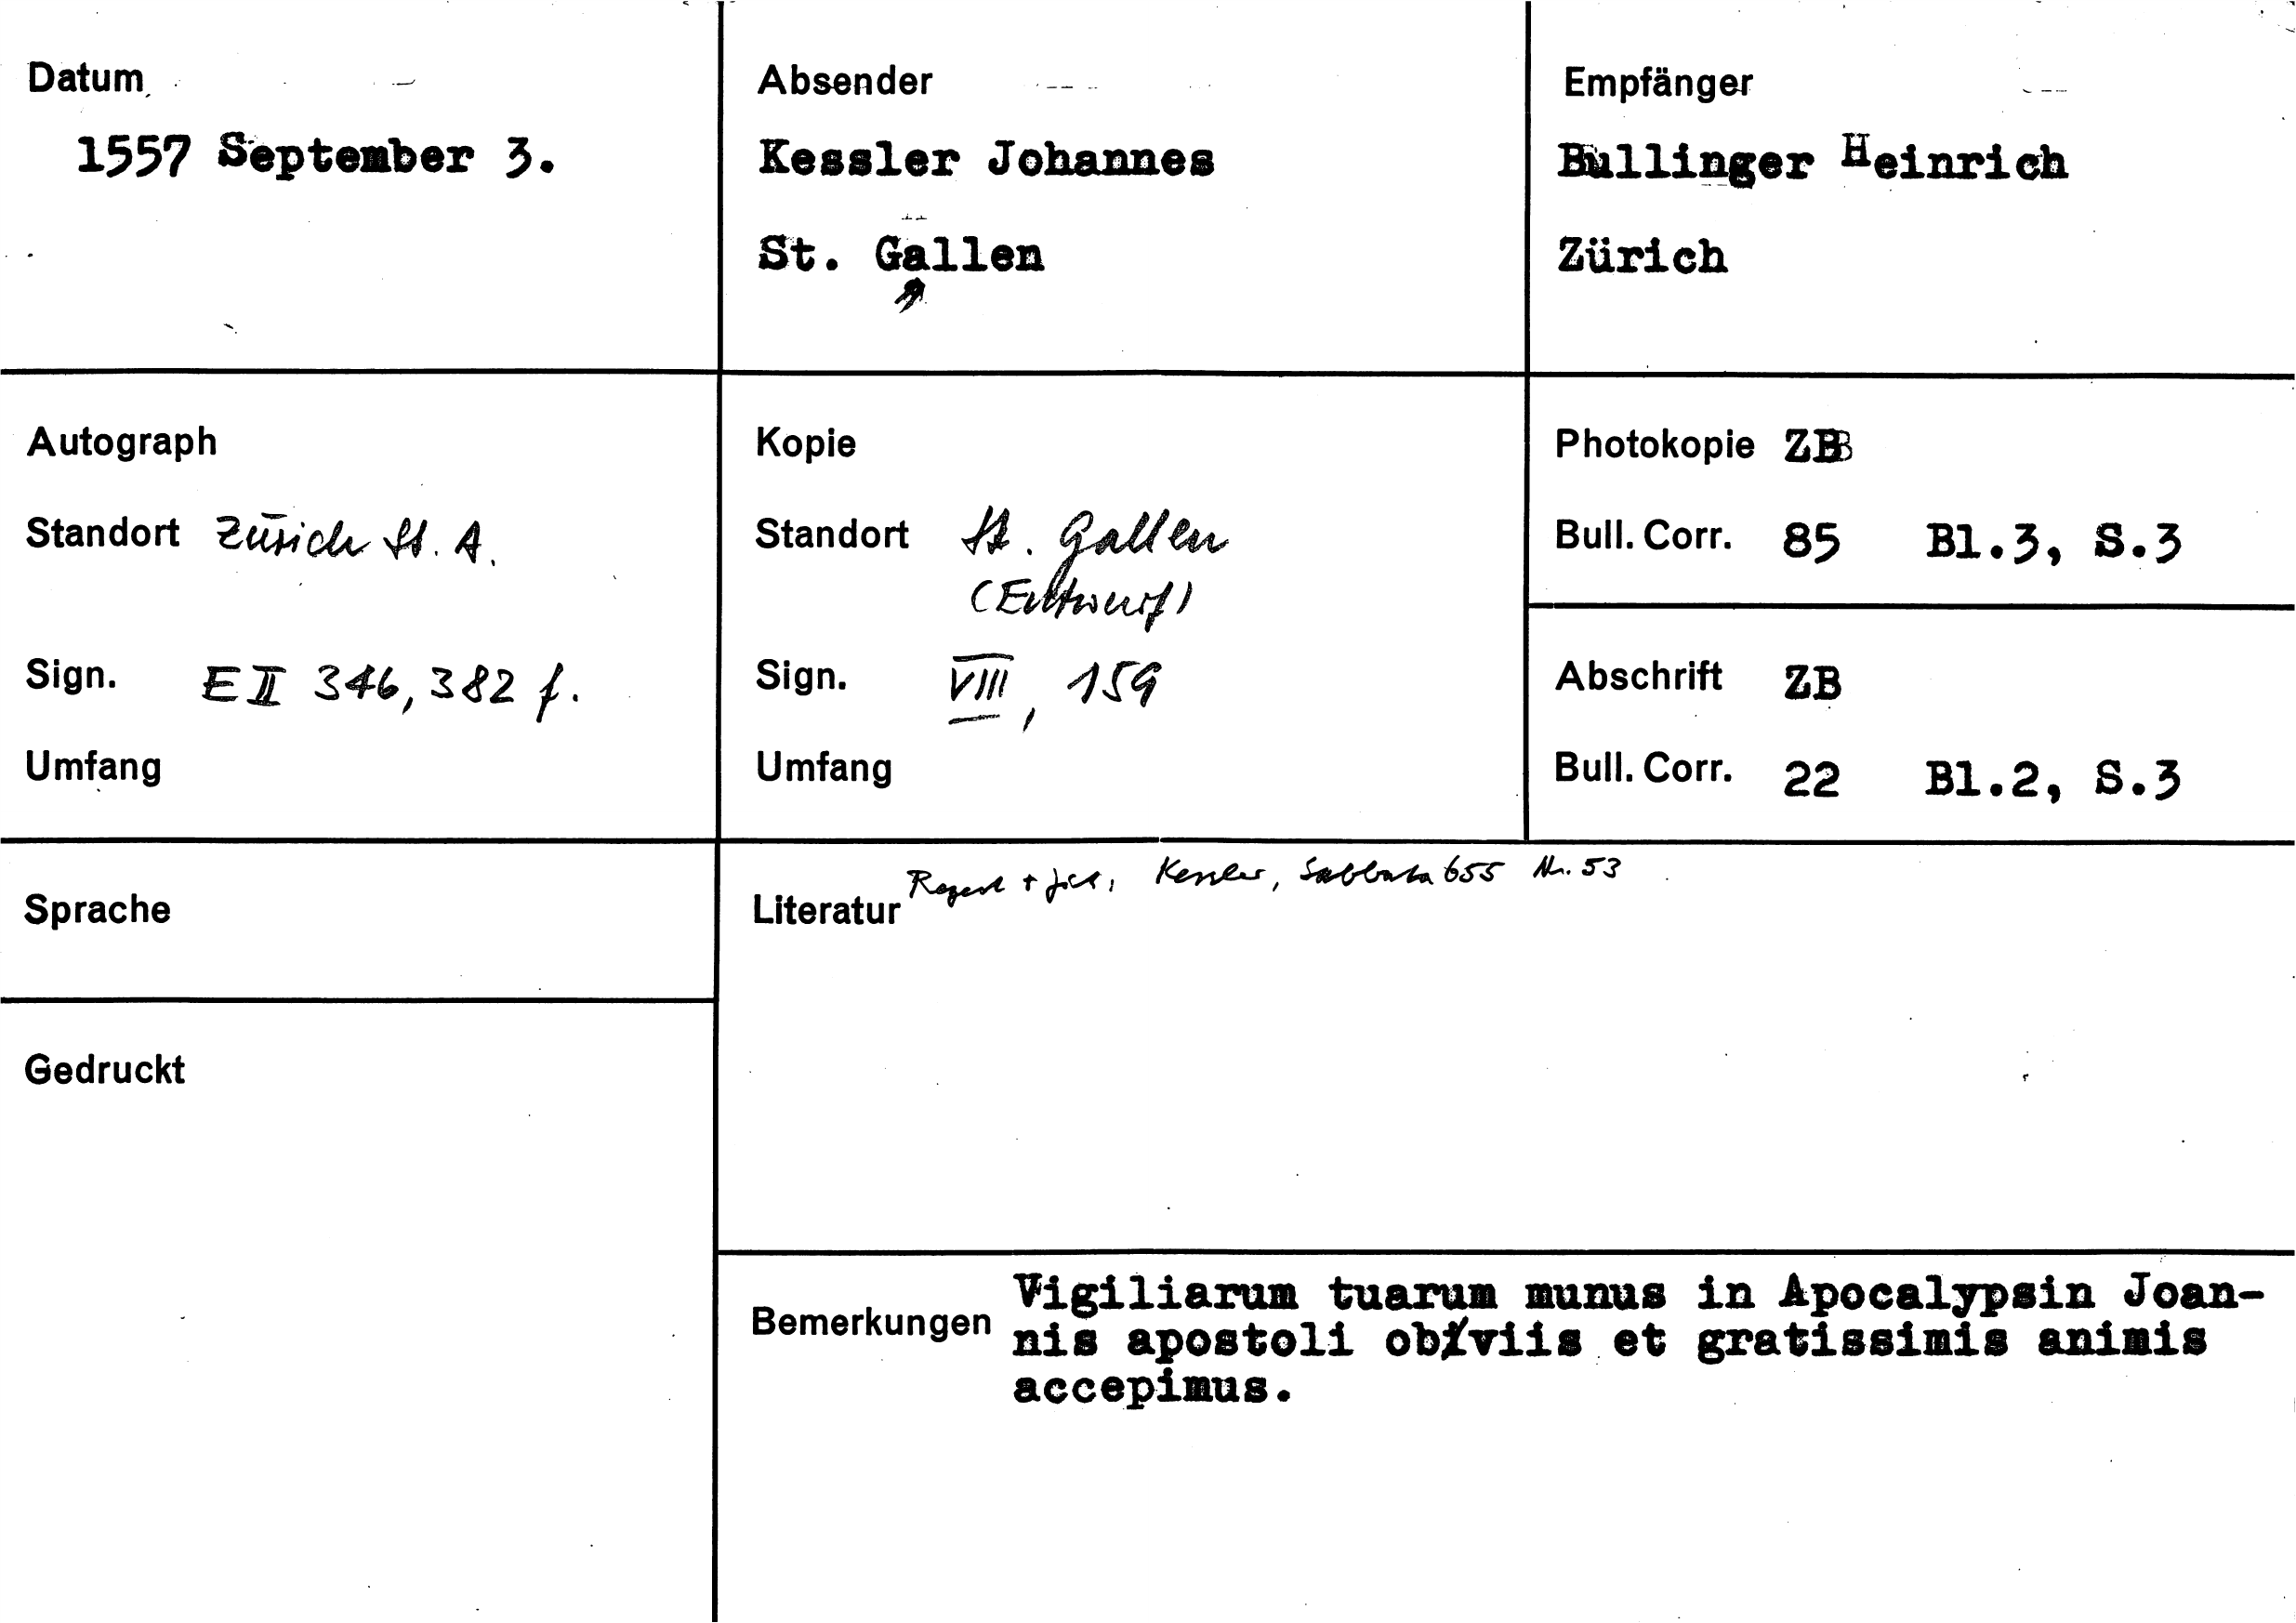 Datum
1557 September 3.
Absender
Kessler Johannes
St. Gallen
Empfänger
Bullinger Heinrich
Zürich
Autograph
Standort Zürich St. A.
Sign. E II 346, 382 f.
Umfang
Kopie
Standort St. Gallen
(Entwurf)
Sign. VIII, 159
Umfang
Photokopie ZB
Bull. Corr. 85 Bl.3, S.3
Abschrift ZB
Bull. Corr. 22 Bl.2, S.3
Sprache
Gedruckt
Literatur Regest + Kessler, Sabbata 655 Nr. 53
Bemerkungen Vigiliarum tuarum munus in Apocalypsin Joan-
nis apostoli obviis et gratissimis animis
accepimus.